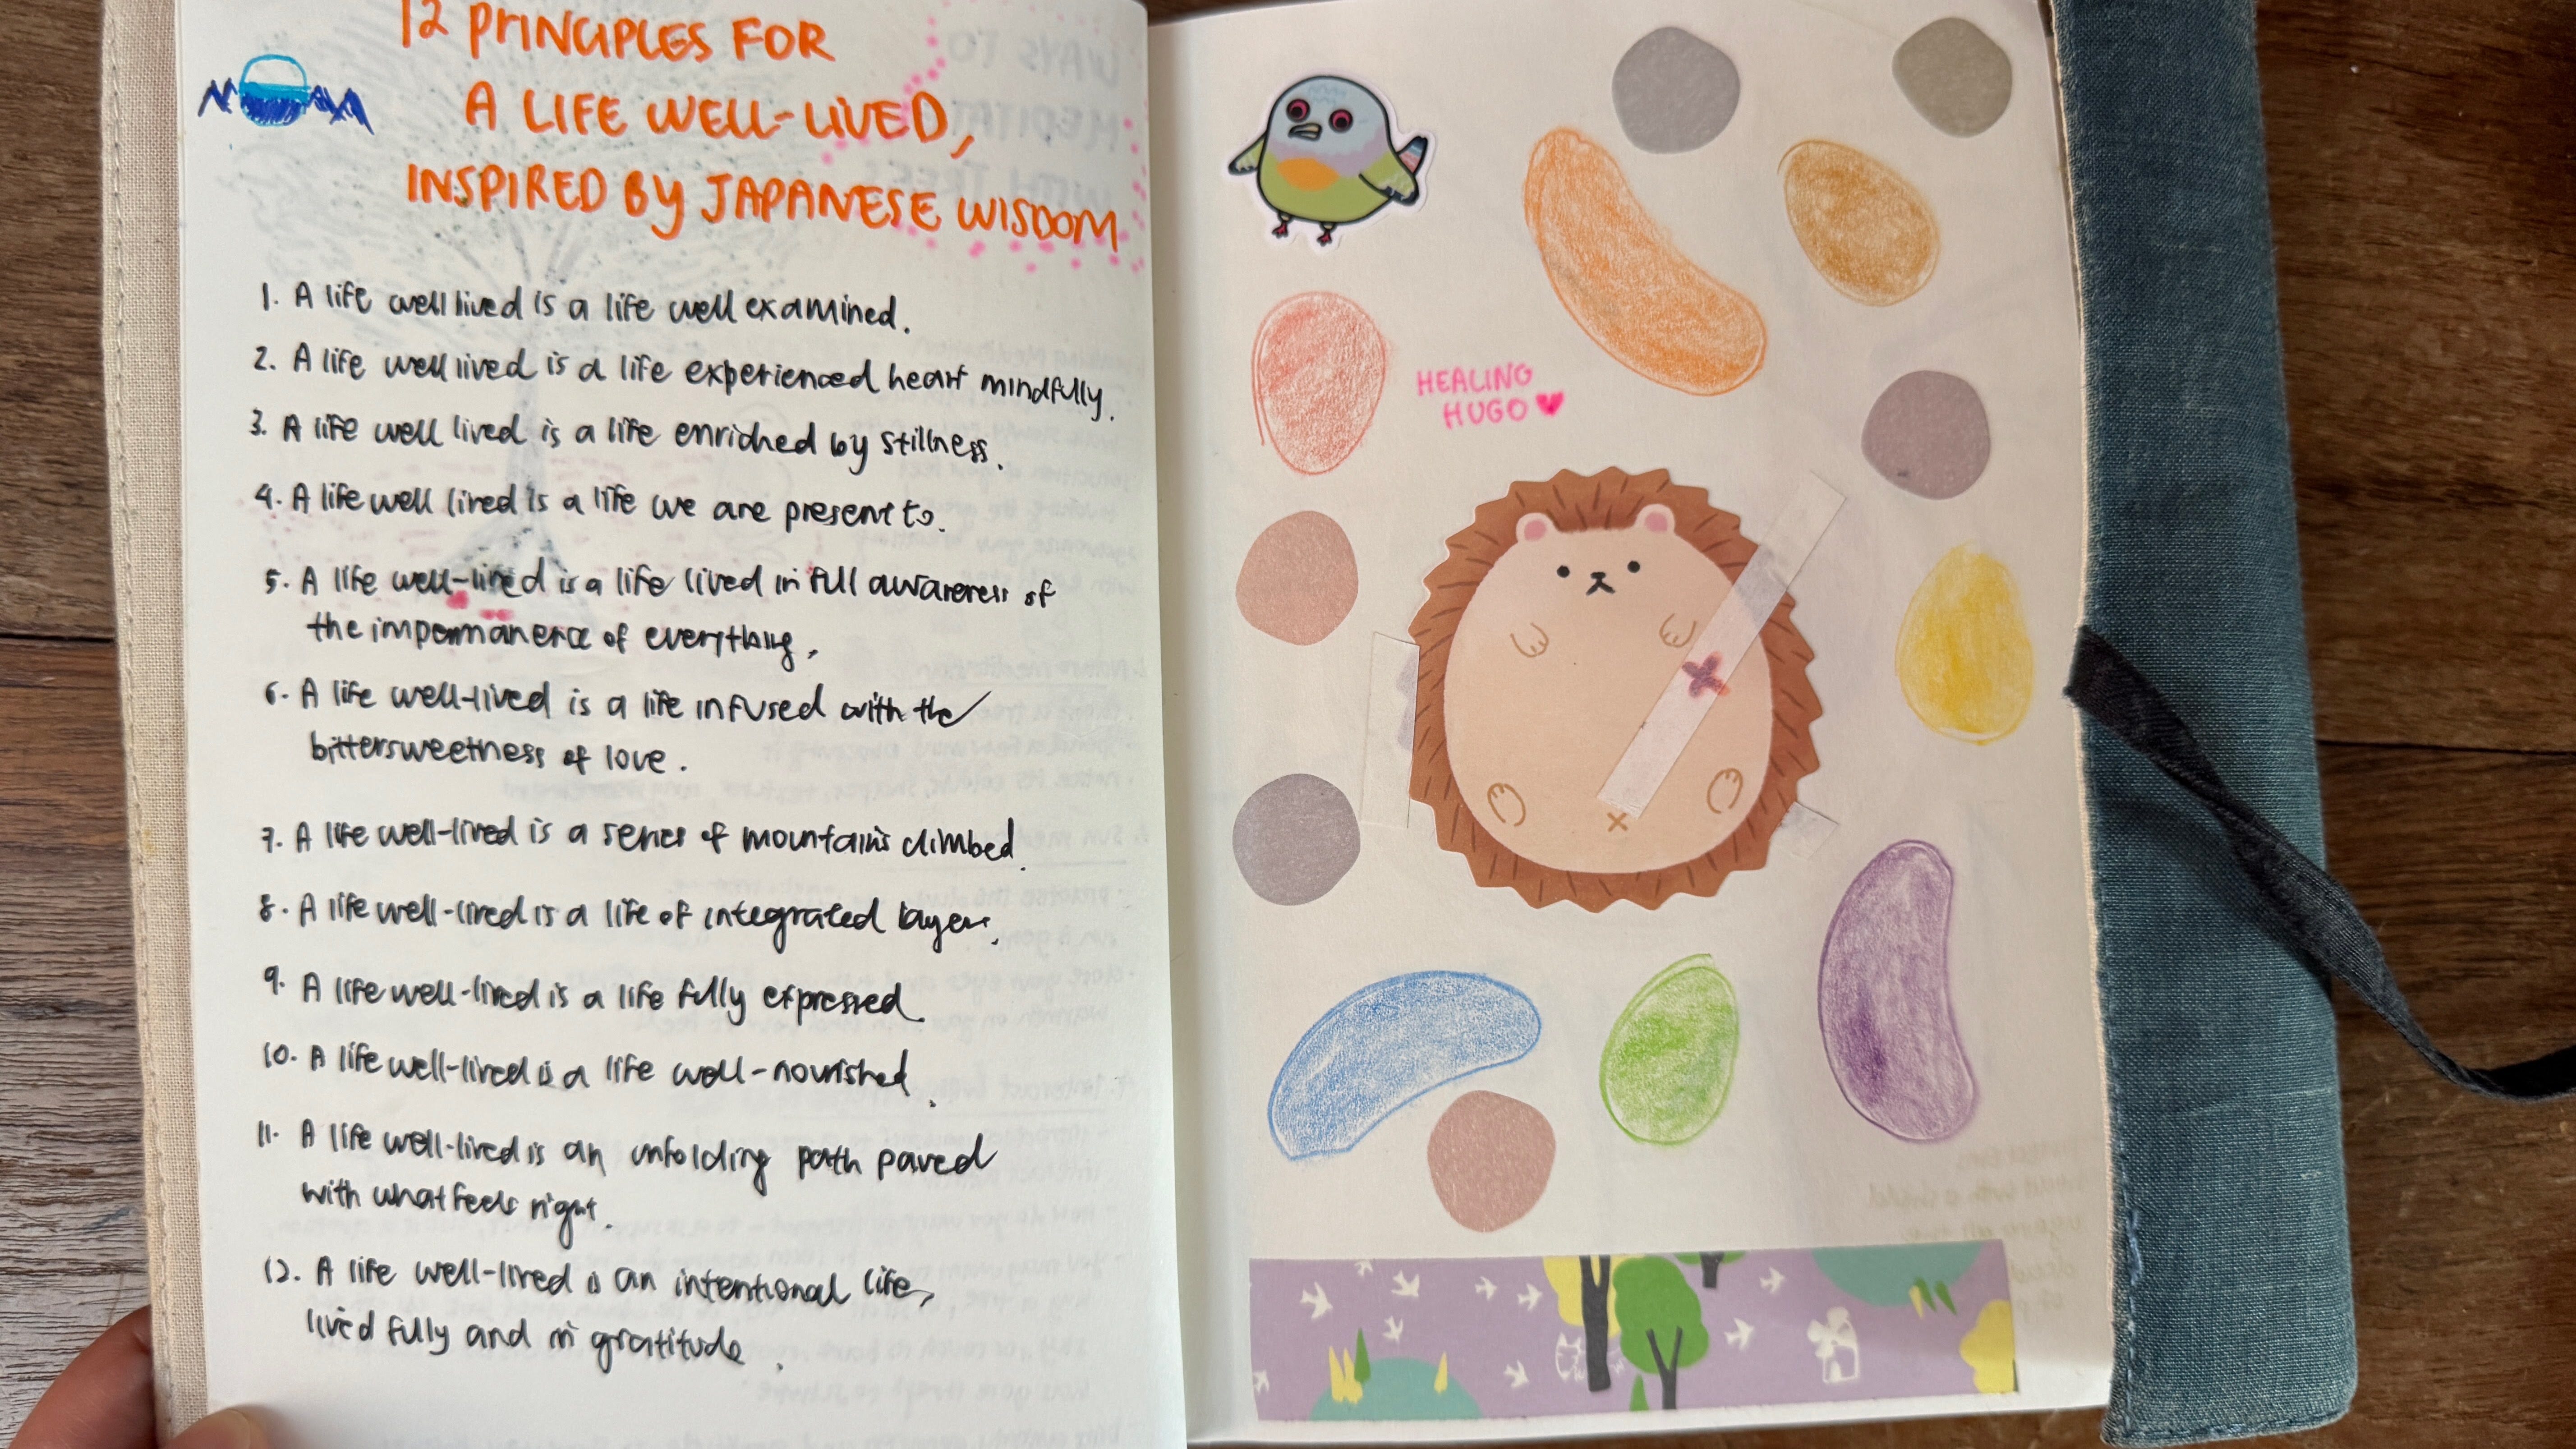 12 PRINCIPLES FOR
A LIFE WELL-LIVED,
INSPIRED BY JAPANESE WISDOM
1. A life well lived is a life well examined.
2. A life well lived is a life experienced heart mindfully.
3. A life well lived is a life enriched by stillness.
4. A life well lived is a life we are present to.
5. A life well-lived is a life lived in full awareness of
the impermanence of everything.
6. A life well-lived is a life infused with the
bittersweetness of love.
7. A life well-lived is a series of mountains climbed.
8. A life well-lived is a life of integrated layers.
9. A life well-lived is a life fully expressed.
10. A life well-lived is a life well-nourished.
11. A life well-lived is an unfolding path paved
with what feels right.
12. A life well-lived is an intentional life,
lived fully and in gratitude.
HEALING
HUGO